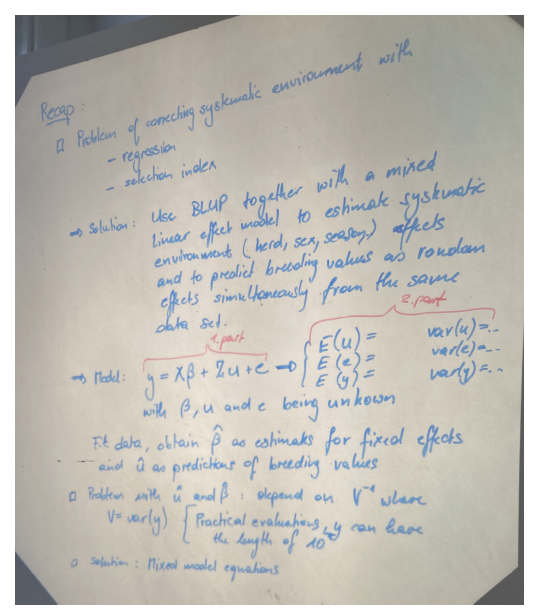 Recap:
□ Problem of correcting systematic environment with
- regression
- selection index
⇒ Solution: Use BLUP together with a mixed
linear effect model to estimate systematic
environment (herd, sex, season,) effects
and to predict breeding values as random
effects simultaneously from the same
data set.
1. part 2. part
⇒ Model: y = Xβ + Zu + e ⇒ { E(u) = var(u) = ..
E(e) = var(e) = ..
E(y) = var(y) = ..
with β, u and e being unkown
Fit data, obtain β̂ as estimates for fixed effects
and û as predictions of breeding values
□ Problem with û and β̂: depend on V⁻¹ where
V = var(y) [Practical evaluations, y can have
the length of
□ Solution: Mixed model equations